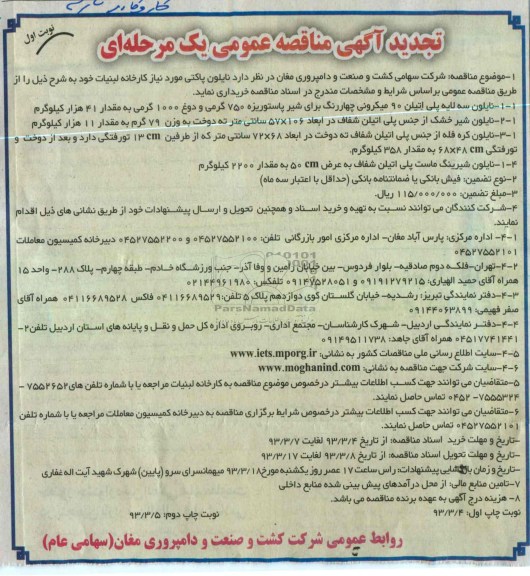 نوبت اول
تجدید آگهی مناقصه عمومی یک مرحله‌ای
۱-موضوع مناقصه: شرکت سهامی کشت و صنعت و دامپروری مغان در نظر دارد نایلون پاکتی مورد نیاز کارخانه لبنیات خود به شرح ذیل را از
طریق مناقصه عمومی براساس شرایط و مشخصات مندرج در اسناد مناقصه خریداری نماید.
۱-۱-نایلون سه لایه پلی اتیلن ۹۰ میکرونی چهاررنگ برای شیر پاستوریزه ۷۵۰ گرمی و دوغ ۱۰۰۰ گرمی به مقدار ۴۱ هزار کیلوگرم
۱-۲-نایلون شیر خشک از جنس پلی اتیلن شفاف در ابعاد ۱۰۶×۵۷ سانتی متر ته دوخت به وزن ۷۹ گرم به مقدار ۱۱ هزار کیلوگرم
۱-۳-نایلون کره فله از جنس پلی اتیلن شفاف ته دوخت در ابعاد ۶۸×۷۲ سانتی متر که از طرفین ۱۳ cm تورفتگی دارد و بعد از دوخت و
تورفتگی ۶۸×۴۸ cm به مقدار ۳۵۸ کیلوگرم.
۱-۴-نایلون شیرینگ ماست پلی اتیلن شفاف به عرض ۵۰ cm به مقدار ۲۲۰۰ کیلوگرم
۲-نوع تضمین: فیش بانکی یا ضمانتنامه بانکی (حداقل با اعتبار سه ماه)
۳-مبلغ تضمین: ۱۱۵/۰۰۰/۰۰۰ ریال.
۴-شرکت کنندگان می توانند نسبت به تهیه و خرید اسناد و همچنین تحویل و ارسال پیشنهادات خود از طریق نشانی های ذیل اقدام
نمایند.
۴-۱- اداره مرکزی: پارس آباد مغان- اداره مرکزی امور بازرگانی تلفن: ۰۴۵۲۷۵۵۲۱۰۰ و ۰۴۵۲۷۵۵۲۲۰۰ دبیرخانه کمیسیون معاملات
۰۴۵۲۷۵۵۲۱۰۱
۴-۲-تهران-فلکه دوم صادقیه- بلوار فردوس- بین خیابان رامین و وفا آذر- جنب ورزشگاه خادم- طبقه چهارم- پلاک ۲۸۸- واحد ۱۵
همراه آقای حمید الهیاری: ۰۹۱۹۱۲۷۹۲۱۵ و ۰۹۱۴۷۵۲۸۰۵۱ تلفکس: ۰۲۱۴۴۹۶۱۹۸۰
۴-۳-دفتر نمایندگی تبریز: رشدیه- خیابان گلستان کوی دوازدهم پلاک ۵ تلفن: ۰۴۱۱۶۶۸۹۵۲۹ فاکس ۰۴۱۱۶۶۸۹۵۲۸ همراه آقای
صفر فهیمی: ۰۹۱۴۴۰۶۳۸۹۹
۴-۴-دفتر نمایندگی اردبیل- شهرک کارشناسان- مجتمع اداری- روبروی اداره کل حمل و نقل و پایانه های استان اردبیل تلفن ۲-
۰۴۵۱۷۷۴۱۴۴۱ همراه آقای جاهد: ۰۹۱۴۹۵۱۱۷۳۸
۴-۵-سایت اطلاع رسانی ملی مناقصات کشور به نشانی: www.iets.mporg.ir
۴-۶-سایت شرکت جهت مناقصه به نشانی: www.moghanind.com
۵-متقاضیان می توانند جهت کسب اطلاعات بیشتر درخصوص موضوع مناقصه به کارخانه لبنیات مراجعه یا با شماره تلفن های ۷۵۵۲۶۵۲-
۷۵۵۵۳۲۴-۰۴۵۲ تماس حاصل نمایند.
۶-متقاضیان می توانند جهت کسب اطلاعات بیشتر درخصوص شرایط برگزاری مناقصه به دبیرخانه کمیسیون معاملات مراجعه یا با شماره تلفن
۰۴۵۲۷۵۵۲۱۰۱ تماس حاصل نمایند.
-تاریخ و مهلت خرید اسناد مناقصه: از تاریخ ۹۳/۳/۴ لغایت ۹۳/۳/۷
-تاریخ و مهلت تحویل اسناد مناقصه: از تاریخ ۹۳/۳/۸ لغایت ۹۳/۳/۱۷
-تاریخ و زمان بازگشایی پیشنهادات: راس ساعت ۱۷ عصر روز یکشنبه مورخ ۹۳/۳/۱۸ میهمانسرای سرو (پایین) شهرک شهید آیت اله غفاری
۷-تامین منابع مالی: از محل درآمدهای پیش بینی شده منابع داخلی
۸- هزینه درج آگهی به عهده برنده مناقصه می باشد.
نوبت چاپ اول: ۹۳/۳/۴ نوبت چاپ دوم: ۹۳/۳/۵
روابط عمومی شرکت کشت و صنعت و دامپروری مغان(سهامی عام)
ParsNamadData